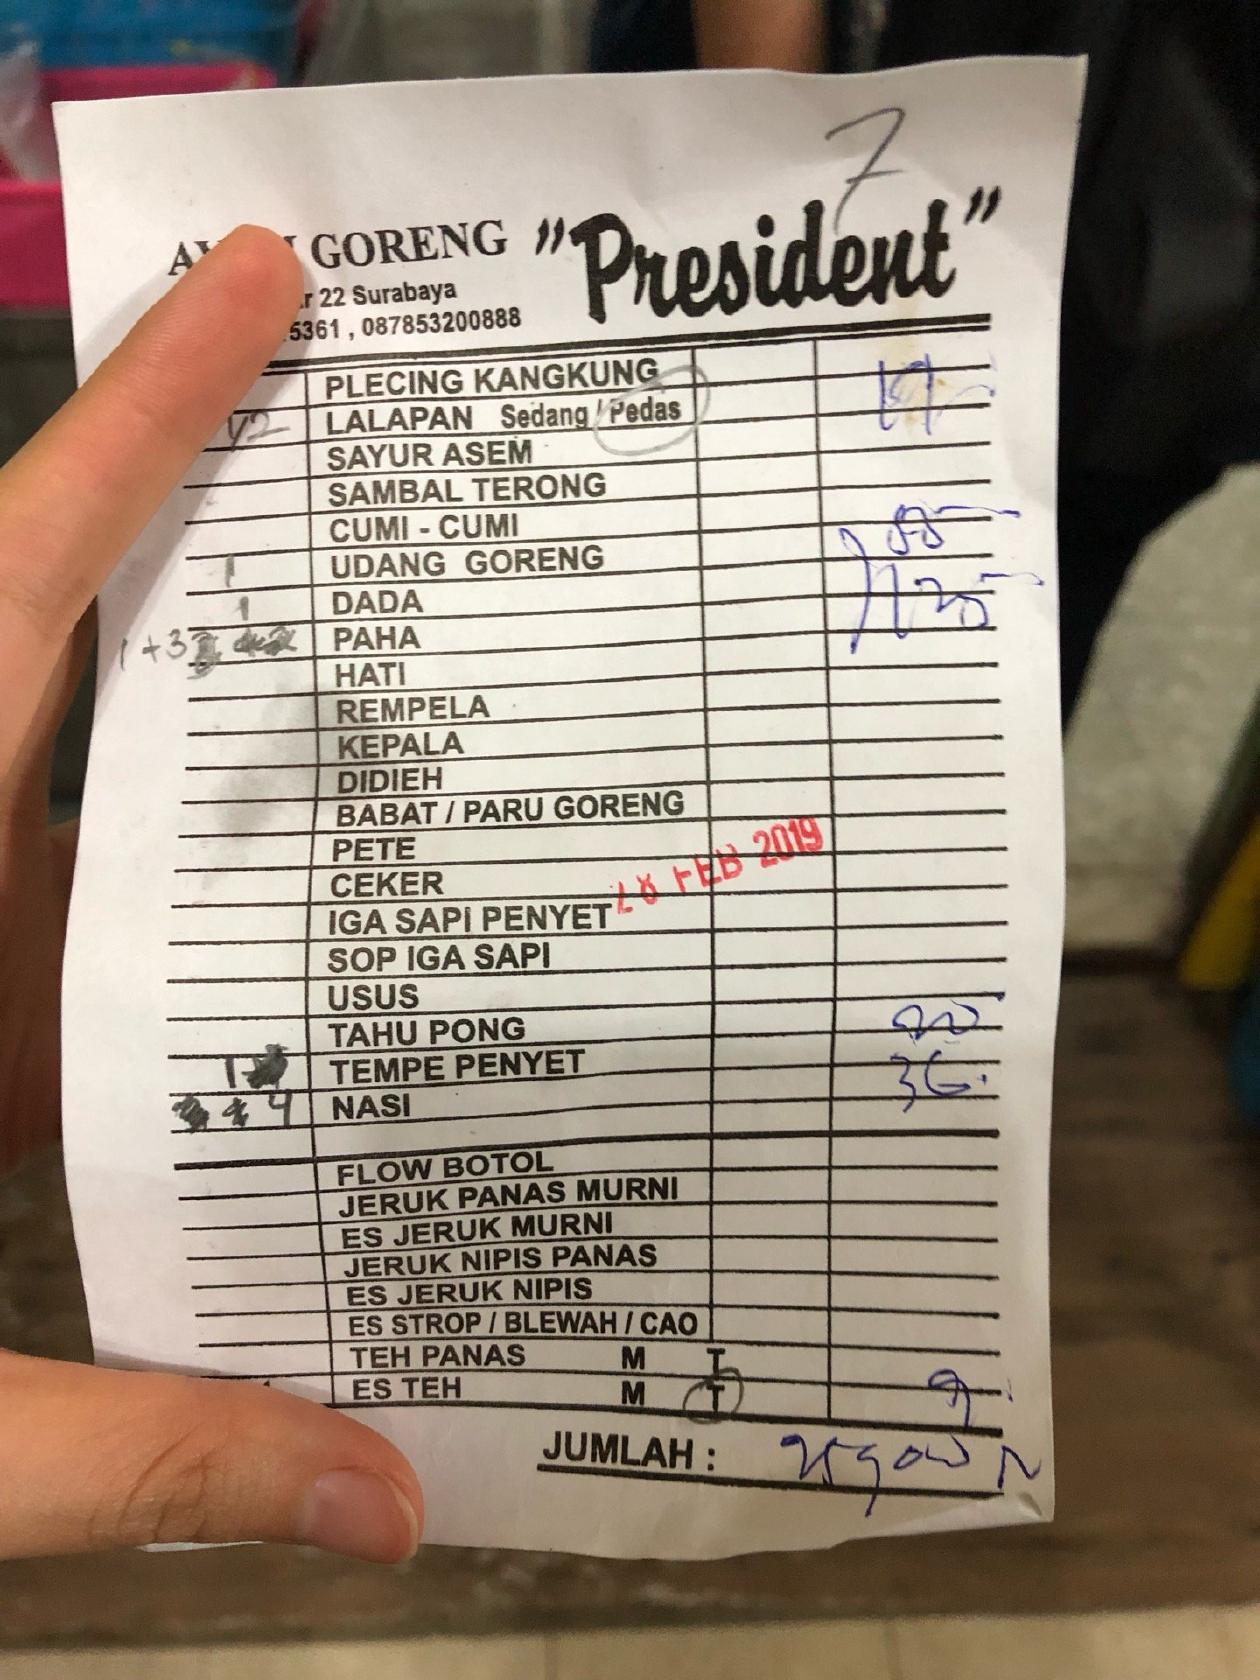 7
GORENG "President"
22 Surabaya
5361 , 087853200888
PLECING KANGKUNG
1/2 LALAPAN Sedang / Pedas
SAYUR ASEM
SAMBAL TERONG
CUMI - CUMI
1 UDANG GORENG
1 DADA
1+3 PAHA
HATI
REMPELA
KEPALA
DIDIEH
BABAT / PARU GORENG
PETE
CEKER
FEB 2019
IGA SAPI PENYET
SOP IGA SAPI
USUS
TAHU PONG
1 TEMPE PENYET
4 NASI 36
FLOW BOTOL
JERUK PANAS MURNI
ES JERUK MURNI
JERUK NIPIS PANAS
ES JERUK NIPIS
ES STROP / BLEWAH / CAO
TEH PANAS M T
ES TEH M T 9
JUMLAH :